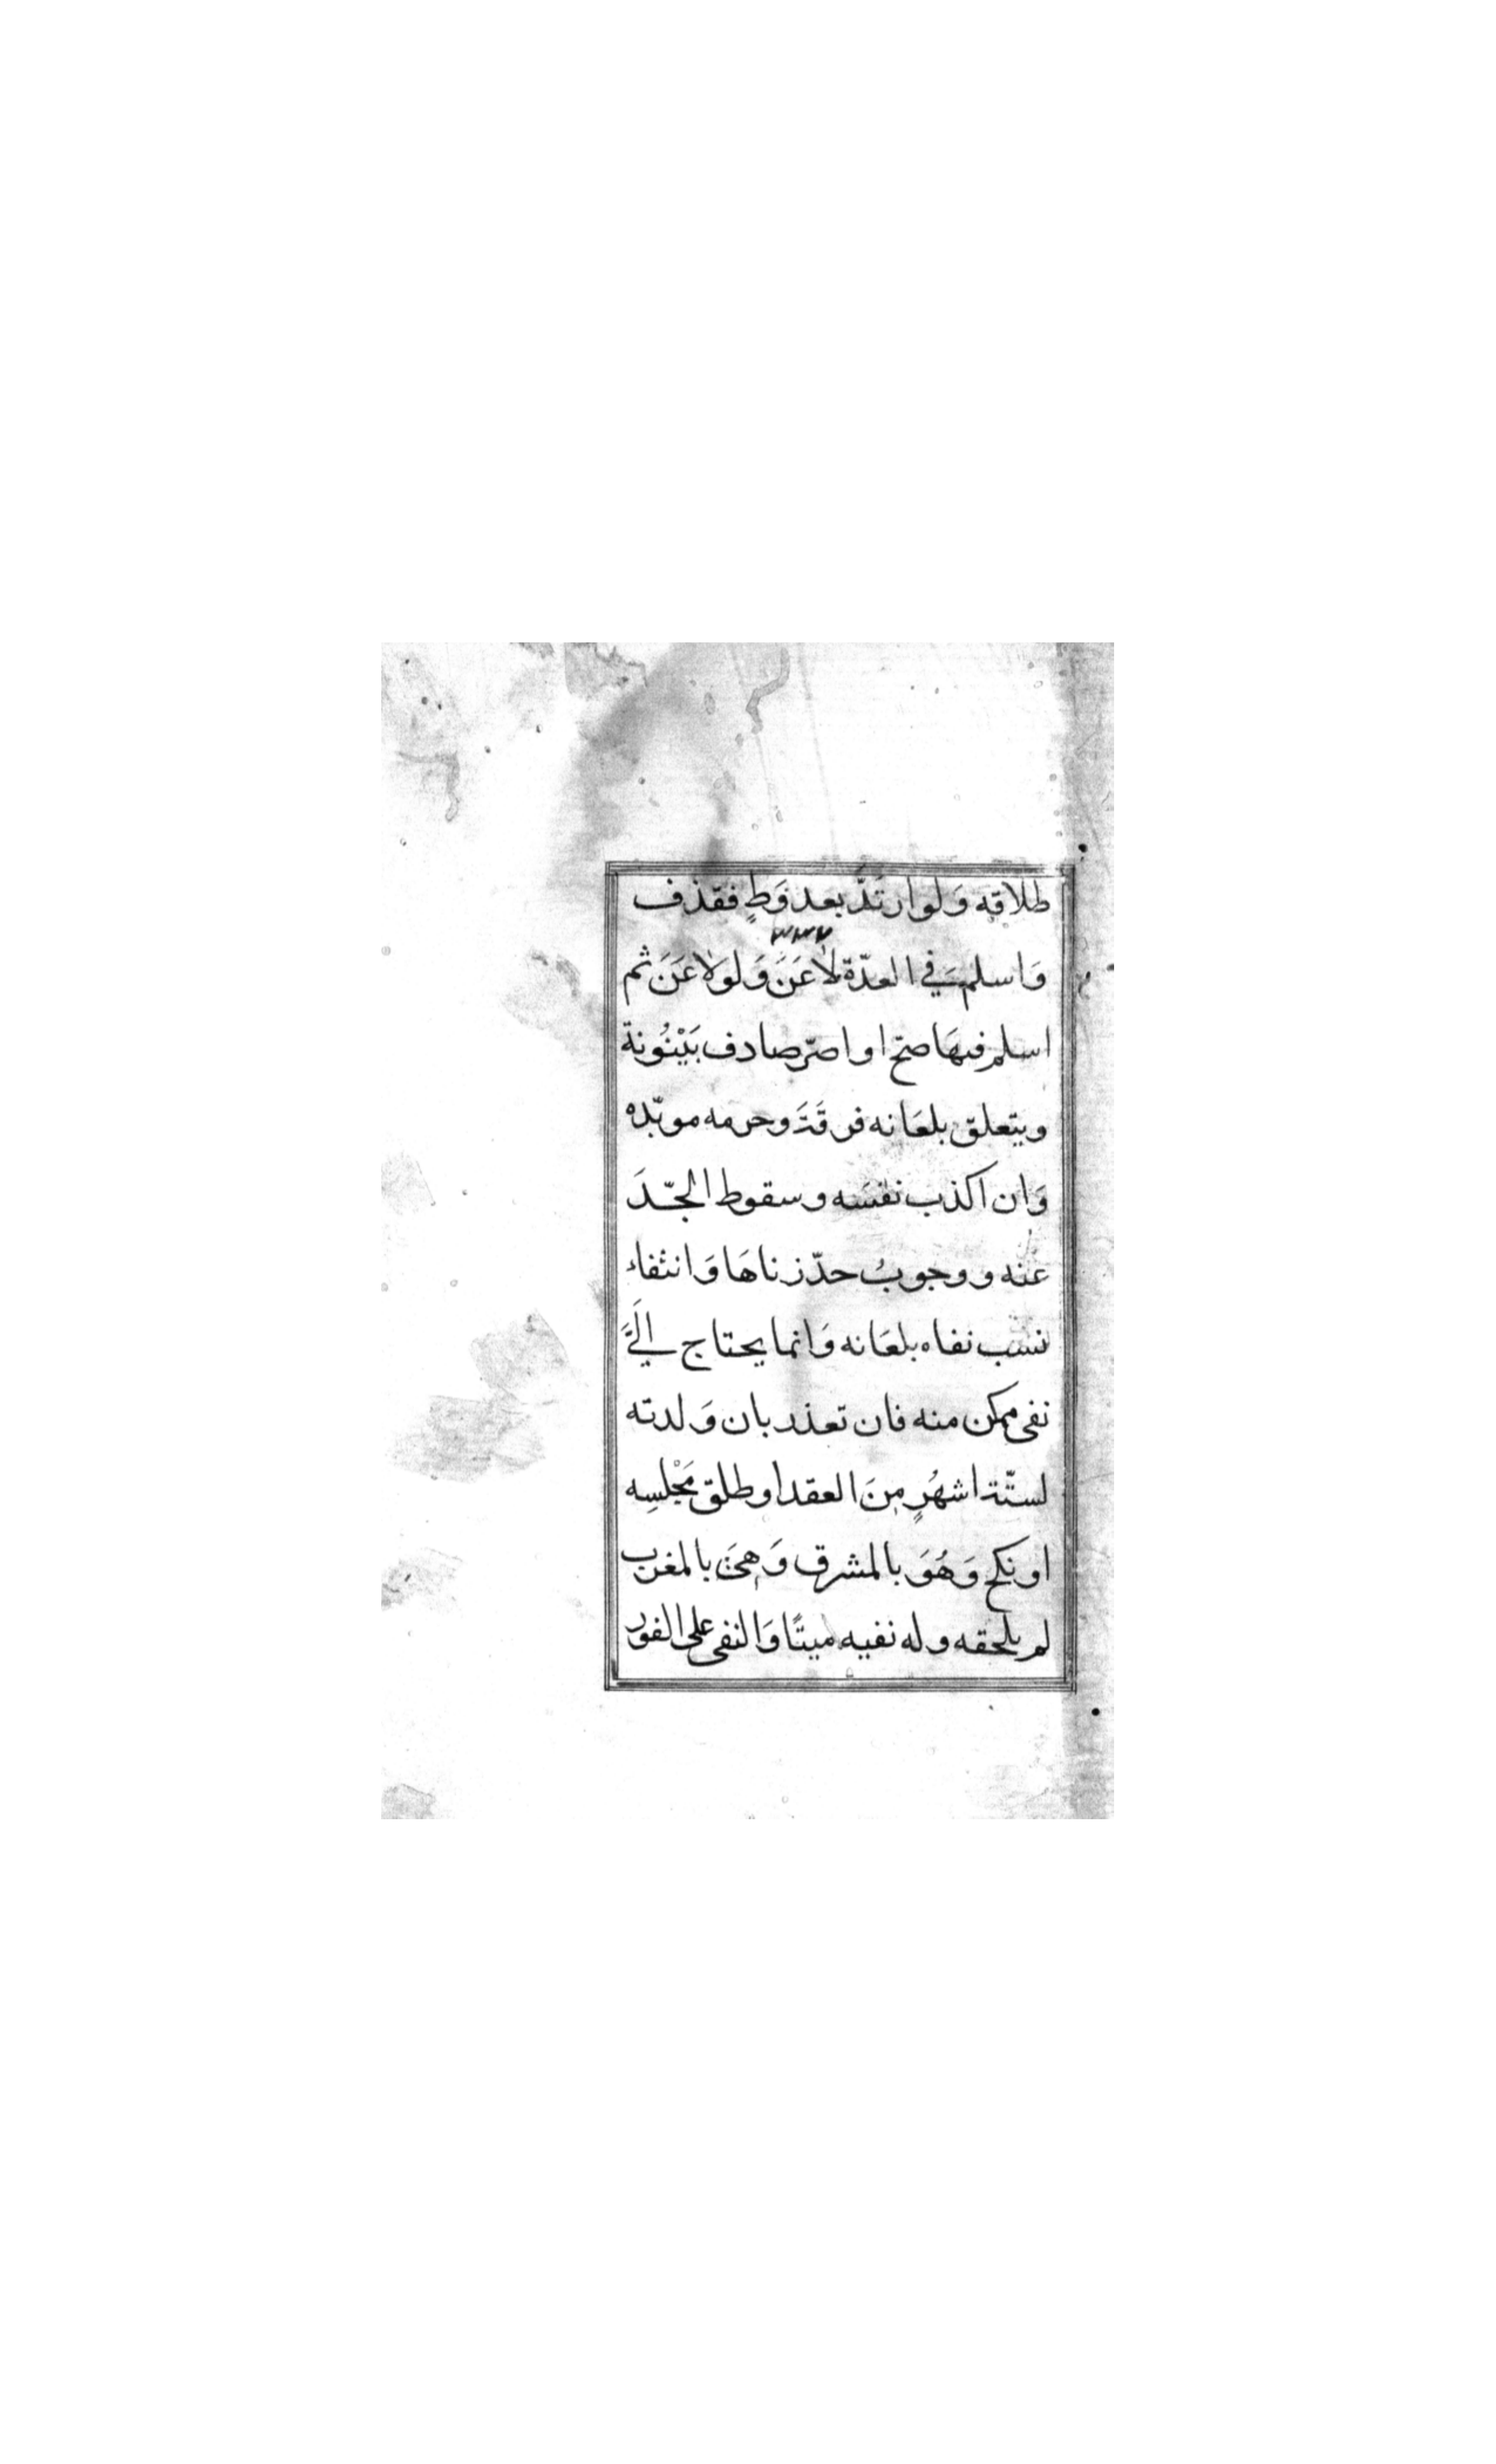 طلاقه وَلو ارتَدَّ بعد وَطٍ فقذف
٣٣٧
وَاسلم في العدّة لاعَنَ وَلولاعَنَ ثم
اسلم فيهَا صحّ او اصرّ صادف بَيْنُونة
ويتعلق بلعَانه فرقَةَ وحرمه موبّده
وَان اكذب نفسَه وسقوط الحّدَ
عنه ووجوبُ حدّ زناهَا وَانثفاء
نسَب نفاه بلعَانه وَانما يحتاج اليَ
نفى ممكن منه فان تعذر بان وَلدته
لستّة اشهُرٍ مِنَ العقد او طلق مَجْلسِه
او نكح وَهُوَ بالمشرق وَهِىَ بالمغرب
لم يلحقه وله نفيه ميتًا وَالنفى على الفور